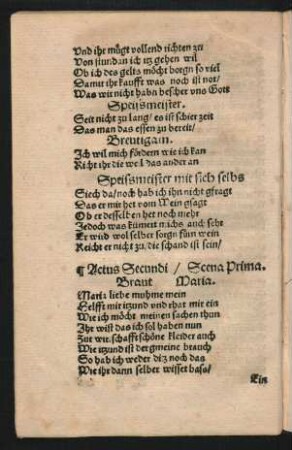 Vnd ihr mügt vollend richten zu
Von stundan ich itz gehen wil
Ob ich des gelts möcht borgn so viel
Damit ihr kaufft was noch ist not/
Was wir nicht habn bescher vns Gott
Speijsmeister.
Seit nicht zu lang/ es ist schier zeit
Das man das essen zu bereit/
Breutigam.
Ich wil mich fördern wie ich kan
Richt ihr die weil das ander an
Speissmeister mit sich selbs
Siech da/noch hab ich ihn nicht gfragt
Das er mir het vom Wein gsagt
Ob er desselben het noch mehr
Jedoch was kümert michs auch sehr
Er wird wol selber sorgn fürn wein
Reicht er nicht zu/die schand ist sein/
¶ Actus Secundi / Scena Prima.
Braut Maria.
Maria liebe muhme mein
Helfft mir itzund vnd rhat mit ein
Wie ich möcht meinen sachen thun
Ihr wist das ich sol haben nun
Zur wir schafft schöne kleider auch
Wie itzund ist dergmeine brauch
So hab ich weder diz noch das
Wie ihr dann selber wisset bas/
Ein